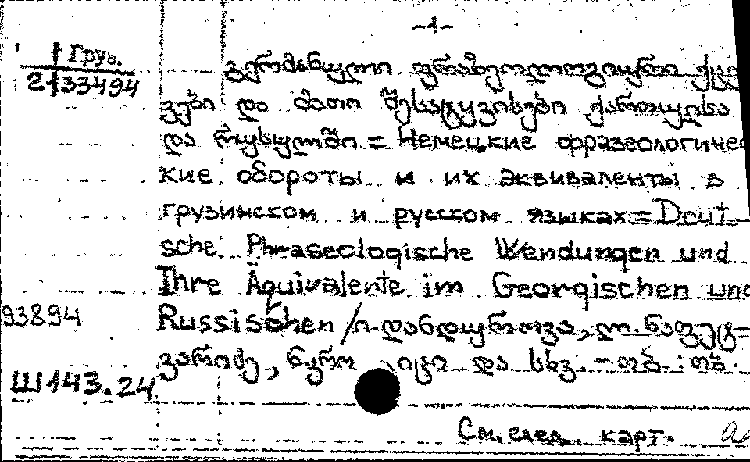 -1-
Груз.
2-33494
გერმანული ფრაზეოლოგიური ქცე
ვები და მათი შესატყვისები ქართულსა
და რუსულში = Немецкие фразеологичес
кие обороты и их эквиваленты в
грузинском и русском языках = Deut
sche Phraseologische Wendungen und
Ihre Äquivalente im Georgischen und
Russischen /ი. დანდუროვა, ლ.
და სხვ. - თბ. : თბ.
93894
Ш143.24
См. след. карт.